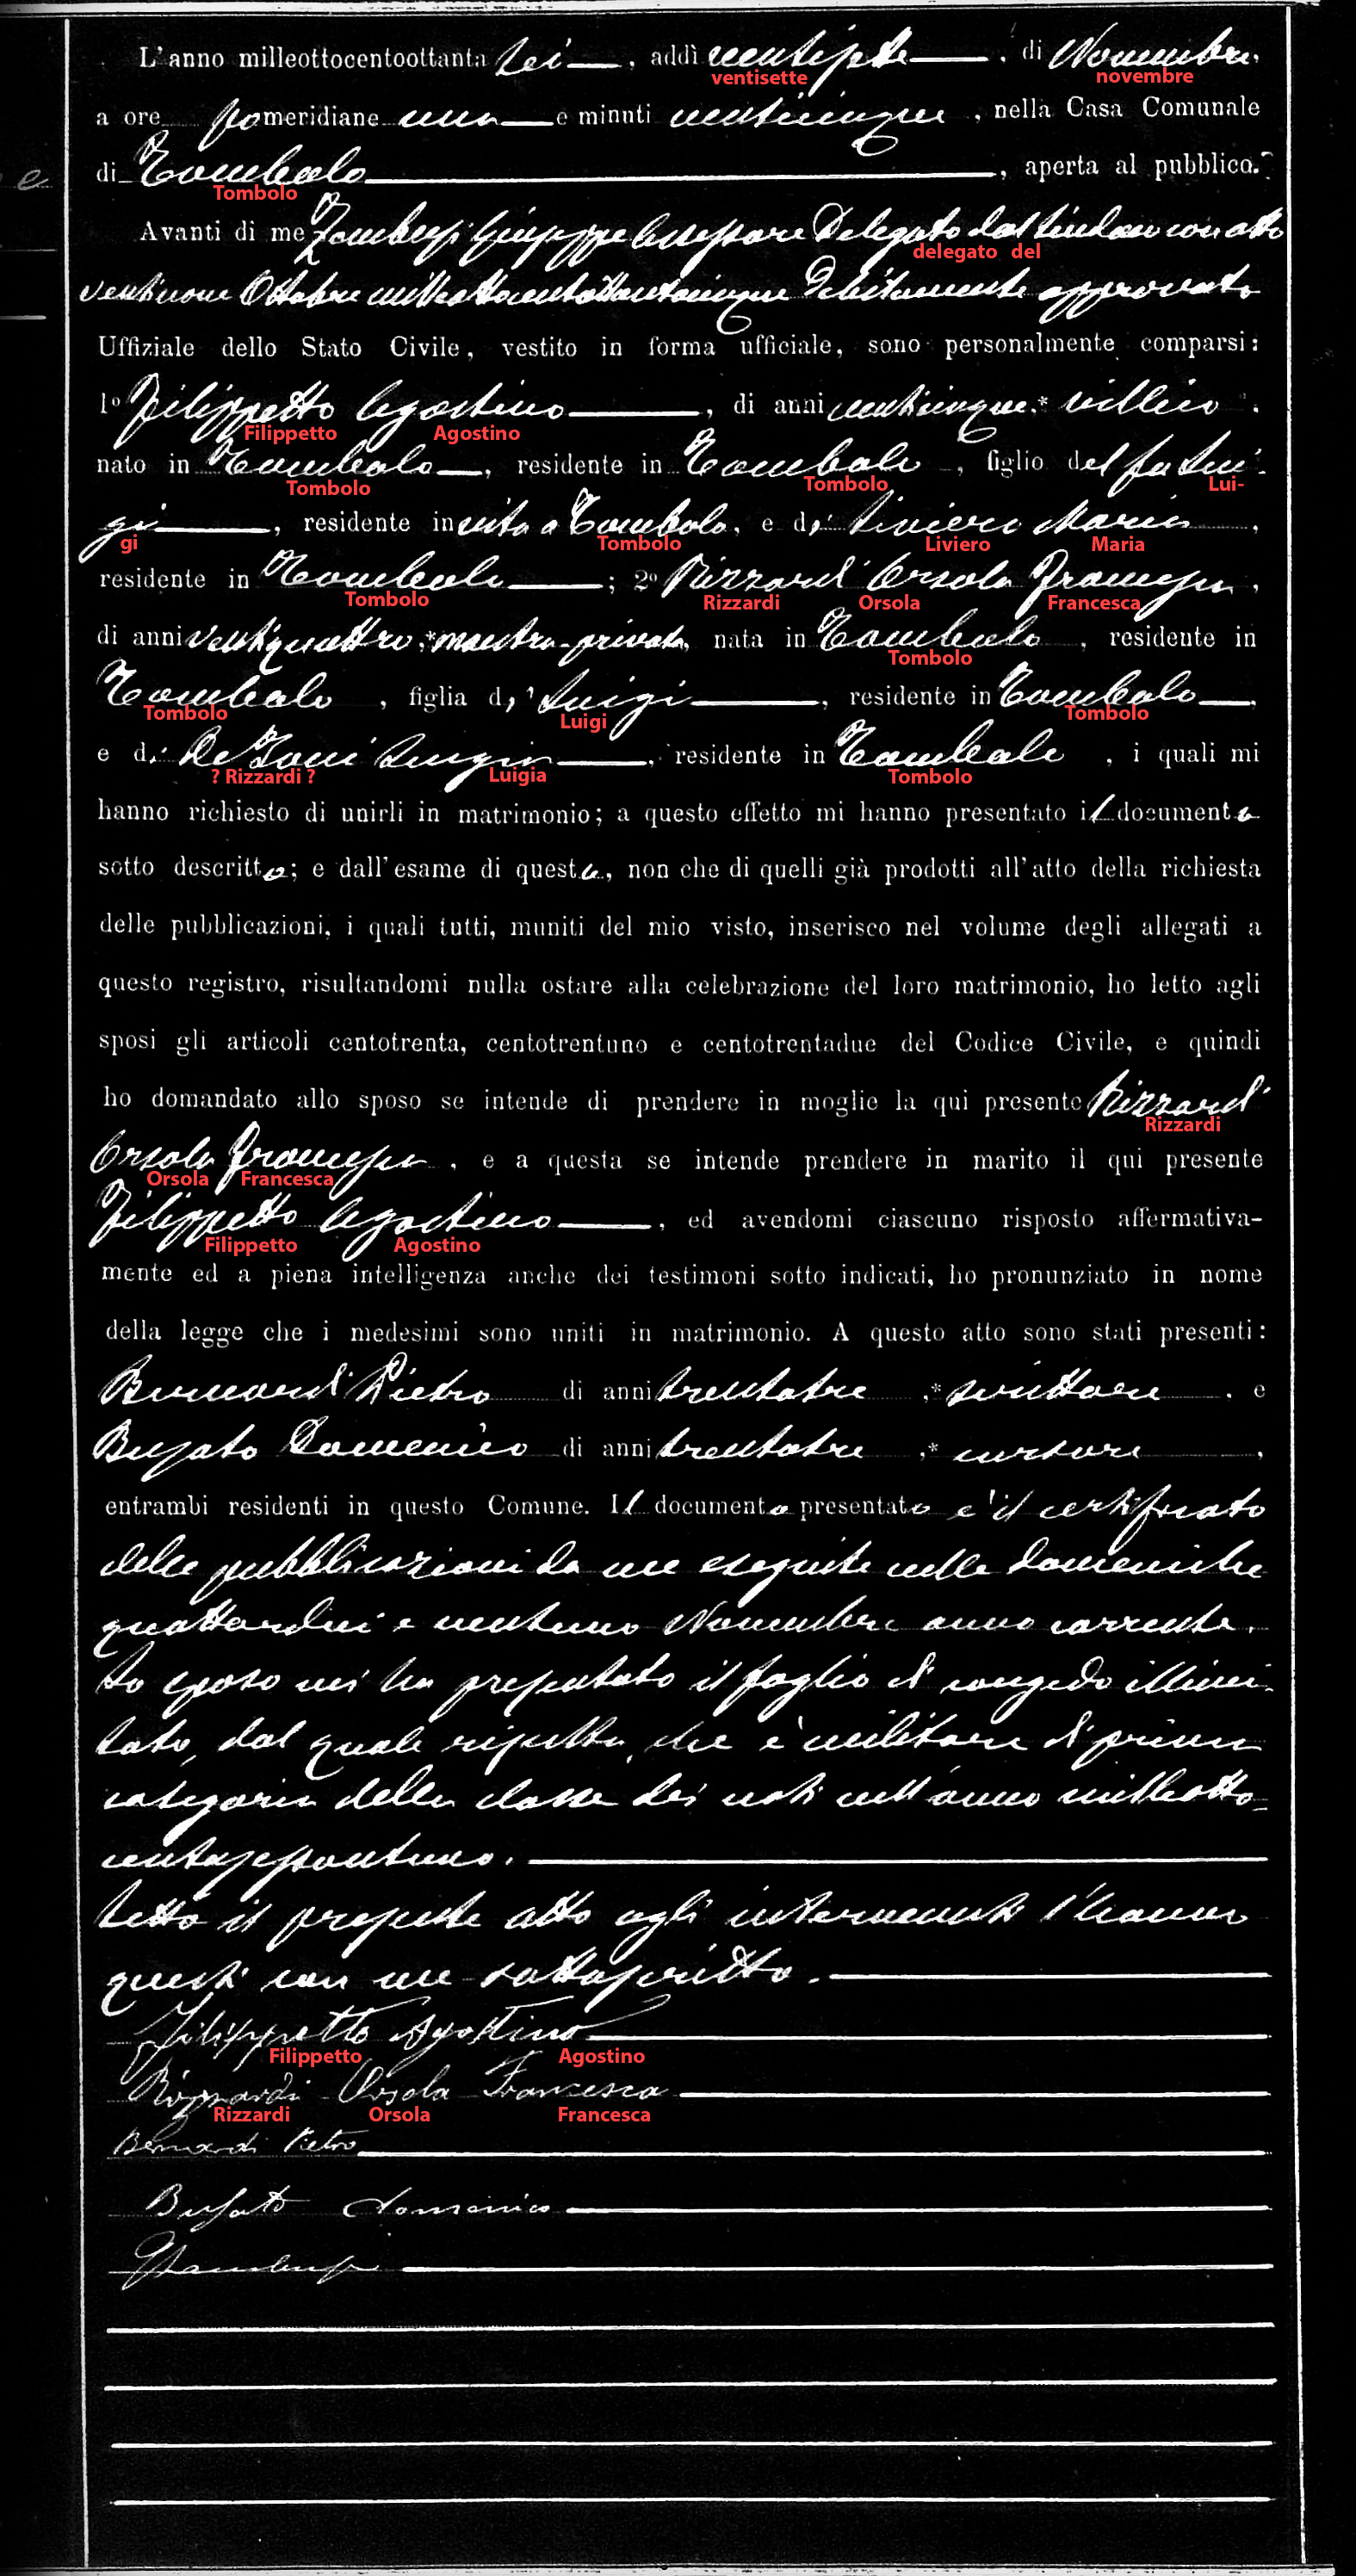 L'anno milleottocentoottanta sei, addì ventisette, di Novembre,
ventisette novembre
a ore pomeridiane una e minuti venticinque, nella Casa Comunale
di Tombolo, aperta al pubblico.
Tombolo
Avanti di me Zambusi Giuseppe Assessore Delegato dal Sindaco con atto
delegato del
ventinove Ottobre milleottocentottantacinque Debitamente approvato
Uffiziale dello Stato Civile, vestito in forma ufficiale, sono personalmente comparsi:
1° Filippetto Agostino, di anni venticinque,* villico,
Filippetto Agostino
nato in Tombolo, residente in Tombolo, figlio del fu Lui-
Tombolo Tombolo Lui-
gi, residente in vita a Tombolo, e di Liviero Maria,
gi Tombolo Liviero Maria
residente in Tombolo; 2° Rizzardi Orsola Francesca,
Tombolo Rizzardi Orsola Francesca
di anni ventiquattro,* maestra privata, nata in Tombolo, residente in
Tombolo
Tombolo, figlia di Luigi, residente in Tombolo,
Tombolo Luigi Tombolo
e di De Toni Luigia, residente in Tombolo, i quali mi
? Rizzardi ? Luigia Tombolo
hanno richiesto di unirli in matrimonio; a questo effetto mi hanno presentato il documento
sotto descritto; e dall'esame di questo, non che di quelli già prodotti all'atto della richiesta
delle pubblicazioni, i quali tutti, muniti del mio visto, inserisco nel volume degli allegati a
questo registro, risultandomi nulla ostare alla celebrazione del loro matrimonio, ho letto agli
sposi gli articoli centotrenta, centotrentuno e centotrentadue del Codice Civile, e quindi
ho domandato allo sposo se intende di prendere in moglie la qui presente Rizzardi
Rizzardi
Orsola Francesca, e a questa se intende prendere in marito il qui presente
Orsola Francesca
Filippetto Agostino, ed avendomi ciascuno risposto affermativa-
Filippetto Agostino
mente ed a piena intelligenza anche dei testimoni sotto indicati, ho pronunziato in nome
della legge che i medesimi sono uniti in matrimonio. A questo atto sono stati presenti:
Bernardi Pietro di anni trentatre,* scrittore, e
Busato Domenico di anni trentatre,* cursore,
entrambi residenti in questo Comune. Il documento presentato è il certificato
delle pubblicazioni da me eseguite nelle domeniche
quattordici e ventuno Novembre anno corrente.
Lo sposo mi ha presentato il foglio di congedo illimi-
tato, dal quale risulta, che è militare di prima
categoria della classe dei nati nell'anno milleotto-
centosessantuno.
Letto il presente atto agli intervenuti l'hanno
questi con me sottoscritto.
Filippetto Agostino
Filippetto Agostino
Rizzardi Orsola Francesca
Rizzardi Orsola Francesca
Bernardi Pietro
Busato domenico
GZambusi